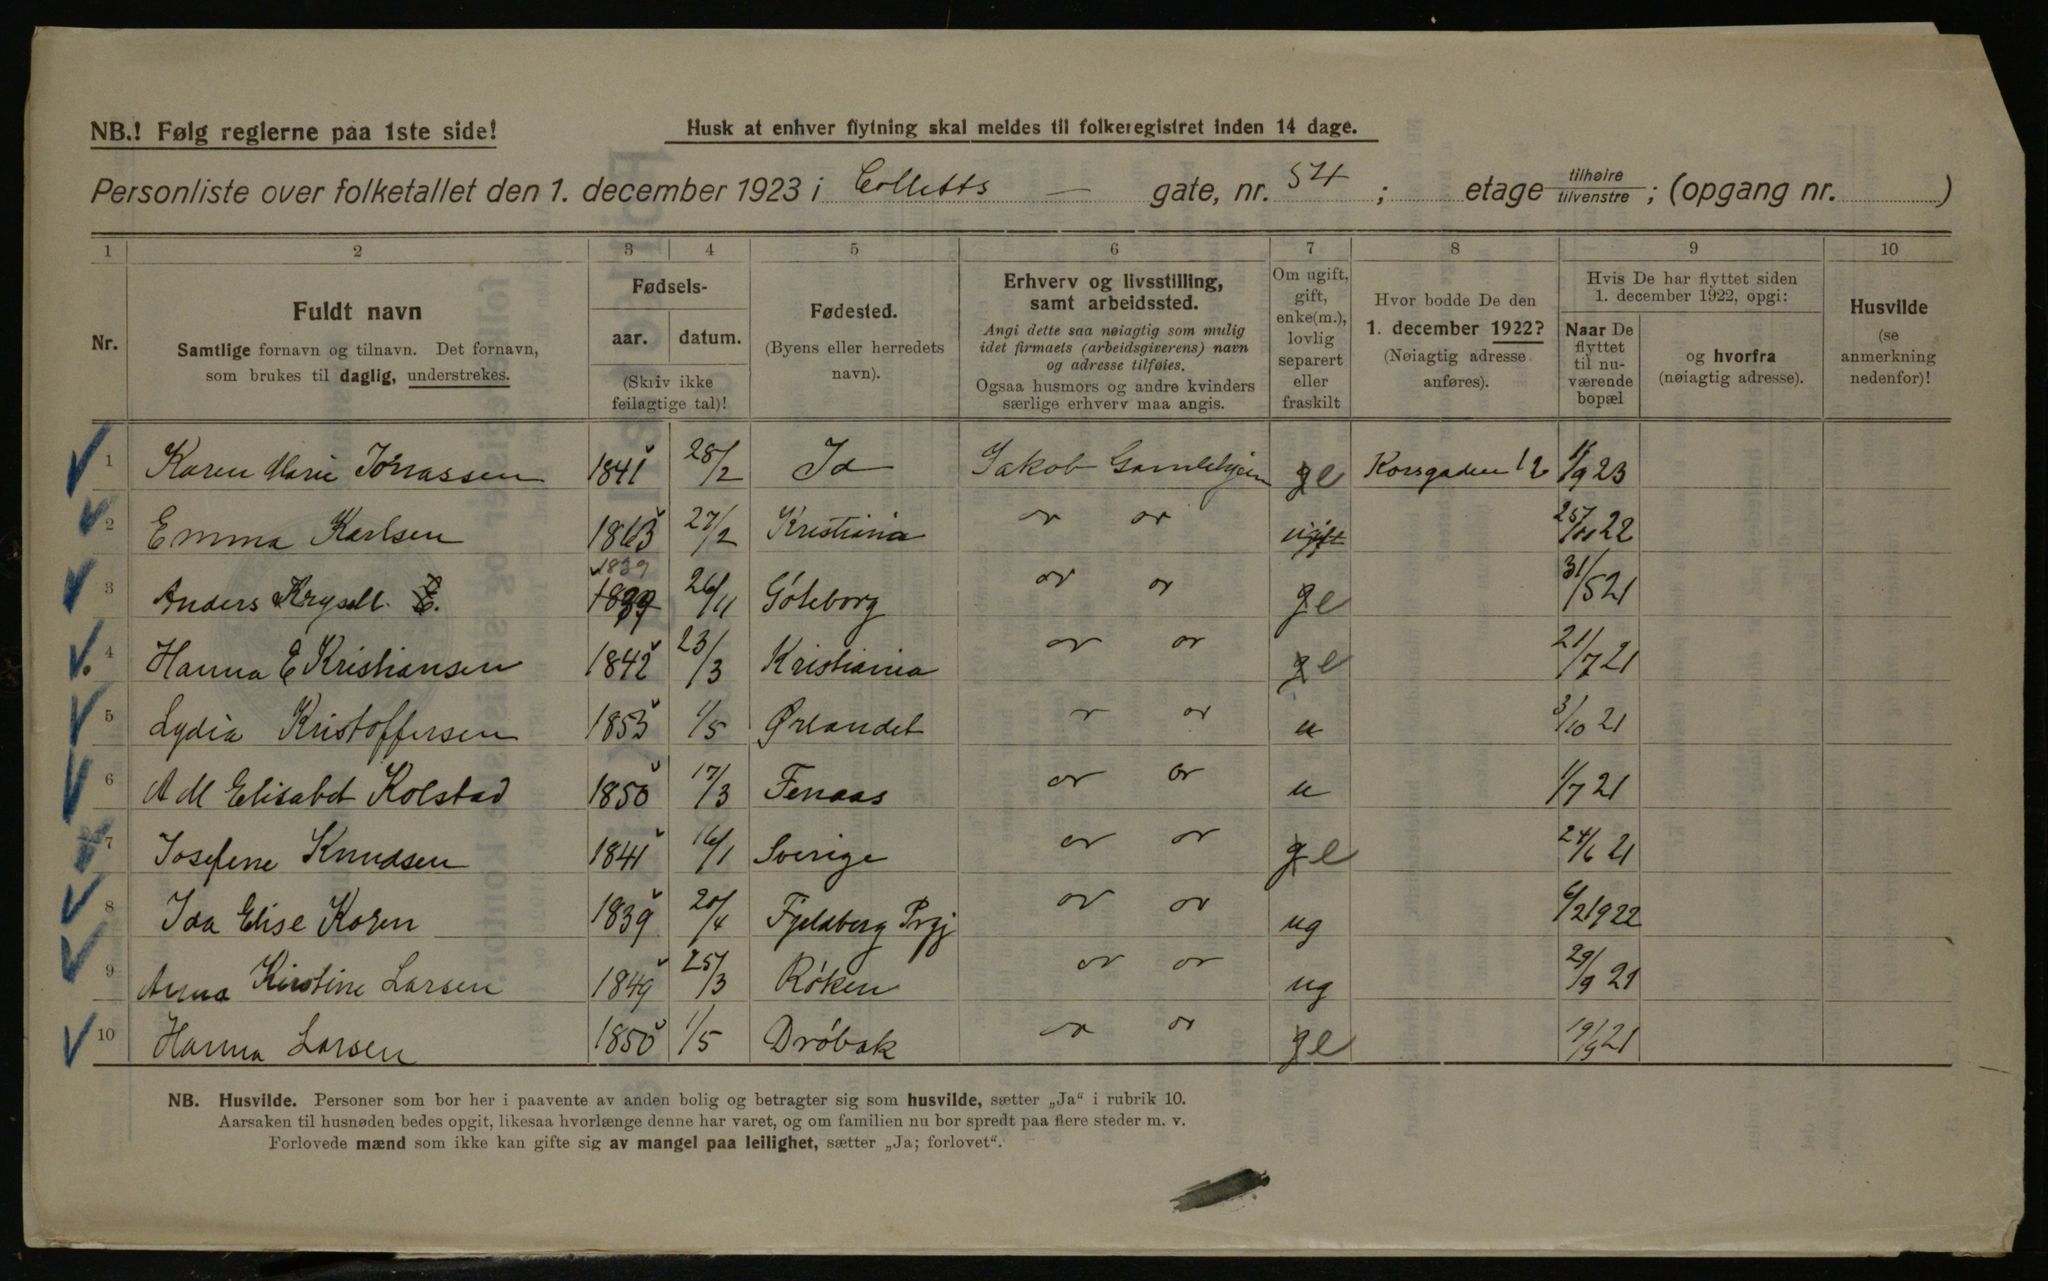 NB.! Følg reglerne paa 1ste side!
Husk at enhver flytning skal meldes til folkeregistret inden 14 dage.
Personliste over folketallet den 1. december 1923 i Colletts — gate, nr. 54 ; etage tilhøire tilvenstre ; (opgang nr. )
1 2 3 4 5 6 7 8 9 10
Nr.
Fuldt navn
Samtlige fornavn og tilnavn. Det fornavn,
som brukes til daglig, understrekes.
Fødsels-
aar. datum.
(Skriv ikke
feilagtige tal)!
Fødested.
(Byens eller herredets
navn).
Erhverv og livsstilling,
samt arbeidssted.
Angi dette saa nøiagtig som mulig
idet firmaets (arbeidsgiverens) navn
og adresse tilføies.
Ogsaa husmors og andre kvinders
særlige erhverv maa angis.
Om ugift,
gift,
enke(m.),
lovlig
separert
eller
fraskilt
Hvor bodde De den
1. december 1922?
(Nøiagtig adresse
anføres).
Hvis De har flyttet siden
1. december 1922, opgi:
Naar De
flyttet
til nu-
værende
bopæl
og hvorfra
(nøiagtig adresse).
Husvilde
(se
anmerkning
nedenfor)!
1 Karen Marie Jonassen 1841 28/2 Id Jakob Gamlehjem ge Korsgaden 12 1/9 23
2 Emma Karlsen 1863 27/2 Kristiania " " ugift 22
1839
3 Anders Krysell 1839 26/11 Göteborg " " ge 31/5 21
4 Hanna E Kristiansen 1842 23/3 Kristiania " " ge 21/7 21
5 Lydia Kristoffersen 1853 1/5 Ørlandet " " u 3/10 21
6 A M Elisabet Kolstad 1850 17/3 Fenaas " " u 1/7 21
7 Josefine Knudsen 1841 16/1 Sverige " " ge 24/6 21
8 Ida Elise Koren 1839 20/4 Fjeldberg Prgj " " ug 6/2 1922
9 Anna Kirstine Larsen 1849 25/3 Røken " " ug 29/9 21
10 Hanna Larsen 1850 1/5 Drøbak " " ge 19/9 21
NB. Husvilde. Personer som bor her i paavente av anden bolig og betragter sig som husvilde, sætter „Ja“ i rubrik 10.
Aarsaken til husnøden bedes opgit, likesaa hvorlænge denne har varet, og om familien nu bor spredt paa flere steder m. v.
Forlovede mænd som ikke kan gifte sig av mangel paa leilighet, sætter „Ja; forlovet“.